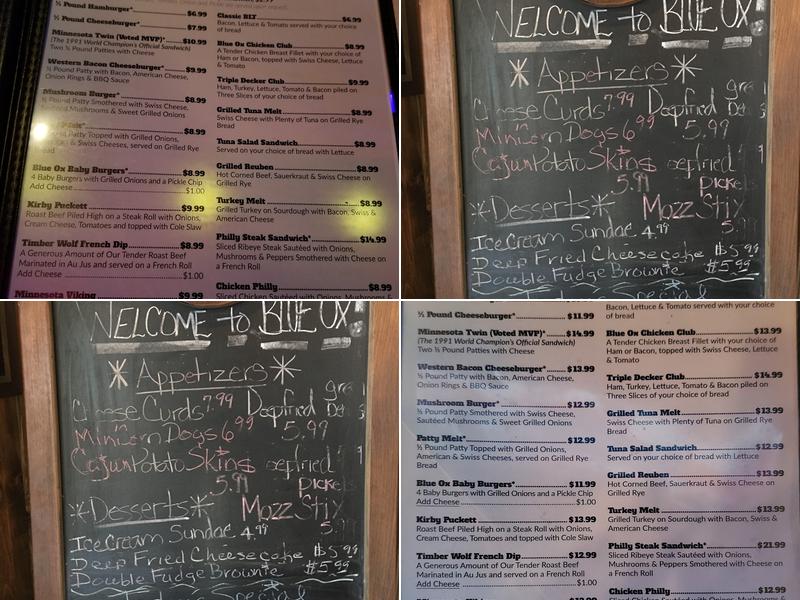 ½ Pound Hamburger* $6.99
½ Pound Cheeseburger* $7.99
Minnesota Twin (Voted MVP)* $10.99
(The 1991 World Champion's Official Sandwich)
Two ½ Pound Patties with Cheese
Western Bacon Cheeseburger* $9.99
½ Pound Patty with Bacon, American Cheese,
Onion Rings & BBQ Sauce
Mushroom Burger* $8.99
½ Pound Patty Smothered with Swiss Cheese,
Sautéed Mushrooms & Sweet Grilled Onions
$8.99
Patty Topped with Grilled Onions,
& Swiss Cheeses, served on Grilled Rye
Blue Ox Baby Burgers* $8.99
4 Baby Burgers with Grilled Onions and a Pickle Chip
Add Cheese $1.00
Kirby Puckett $9.99
Roast Beef Piled High on a Steak Roll with Onions,
Cream Cheese, Tomatoes and topped with Cole Slaw
Timber Wolf French Dip $8.99
A Generous Amount of Our Tender Roast Beef
Marinated in Au Jus and served on a French Roll
Add Cheese $1.00
Minnesota Viking $9.99
Classic BLT $6.99
Bacon, Lettuce & Tomato served with your choice
of bread
Blue Ox Chicken Club $8.99
A Tender Chicken Breast Fillet with your choice of
Ham or Bacon, topped with Swiss Cheese, Lettuce
& Tomato
Triple Decker Club $9.99
Ham, Turkey, Lettuce, Tomato & Bacon piled on
Three Slices of your choice of bread
Grilled Tuna Melt $8.99
Swiss Cheese with Plenty of Tuna on Grilled Rye
Bread
Tuna Salad Sandwich $8.99
Served on your choice of bread with Lettuce
Grilled Reuben $8.99
Hot Corned Beef, Sauerkraut & Swiss Cheese on
Grilled Rye
Turkey Melt $8.99
Grilled Turkey on Sourdough with Bacon, Swiss &
American Cheese
Philly Steak Sandwich* $14.99
Sliced Ribeye Steak Sautéed with Onions,
Mushrooms & Peppers Smothered with Cheese on
a French Roll
Chicken Philly $8.99
Sliced Chicken Sautéed with Onions, Mushrooms &
WELCOME to BLUE OX
Appetizers
Cheese Curds 7.99 Deepfried
Mini Corn Dogs 6.99 5.99
Cajun Potato Skins
5.99 Pickle
Desserts Mozz Stix
Ice Cream Sundae 4.99
Deep Fried Cheesecake $5.99
Double Fudge Brownie $5.99
WELCOME to BLUE OX
Appetizers
Cheese Curds 7.99 Deepfried
Mini Corn Dogs 6.99 5.99
Cajun Potato Skins
5.99 Pickle
Desserts Mozz Stix
Ice Cream Sundae 4.99
Deep Fried Cheesecake $5.99
Double Fudge Brownie $5.99
Special
½ Pound Cheeseburger* $11.99
Minnesota Twin (Voted MVP)* $14.99
(The 1991 World Champion's Official Sandwich)
Two ½ Pound Patties with Cheese
Western Bacon Cheeseburger* $13.99
½ Pound Patty with Bacon, American Cheese,
Onion Rings & BBQ Sauce
Mushroom Burger* $12.99
½ Pound Patty Smothered with Swiss Cheese,
Sautéed Mushrooms & Sweet Grilled Onions
Patty Melt* $12.99
½ Pound Patty Topped with Grilled Onions,
American & Swiss Cheeses, served on Grilled Rye
Bread
Blue Ox Baby Burgers* $11.99
4 Baby Burgers with Grilled Onions and a Pickle Chip
Add Cheese $1.00
Kirby Puckett $13.99
Roast Beef Piled High on a Steak Roll with Onions,
Cream Cheese, Tomatoes and topped with Cole Slaw
Timber Wolf French Dip $12.99
A Generous Amount of Our Tender Roast Beef
Marinated in Au Jus and served on a French Roll
Add Cheese $1.00
Bacon, Lettuce & Tomato served with your choice
of bread
Blue Ox Chicken Club $13.99
A Tender Chicken Breast Fillet with your choice of
Ham or Bacon, topped with Swiss Cheese, Lettuce
& Tomato
Triple Decker Club $14.99
Ham, Turkey, Lettuce, Tomato & Bacon piled on
Three Slices of your choice of bread
Grilled Tuna Melt $13.99
Swiss Cheese with Plenty of Tuna on Grilled Rye
Bread
Tuna Salad Sandwich $12.99
Served on your choice of bread with Lettuce
Grilled Reuben $13.99
Hot Corned Beef, Sauerkraut & Swiss Cheese on
Grilled Rye
Turkey Melt $13.99
Grilled Turkey on Sourdough with Bacon, Swiss &
American Cheese
Philly Steak Sandwich* $21.99
Sliced Ribeye Steak Sautéed with Onions,
Mushrooms & Peppers Smothered with Cheese on
a French Roll
Chicken Philly $12.99
Sliced Chicken Sautéed with Onions, Mushrooms &